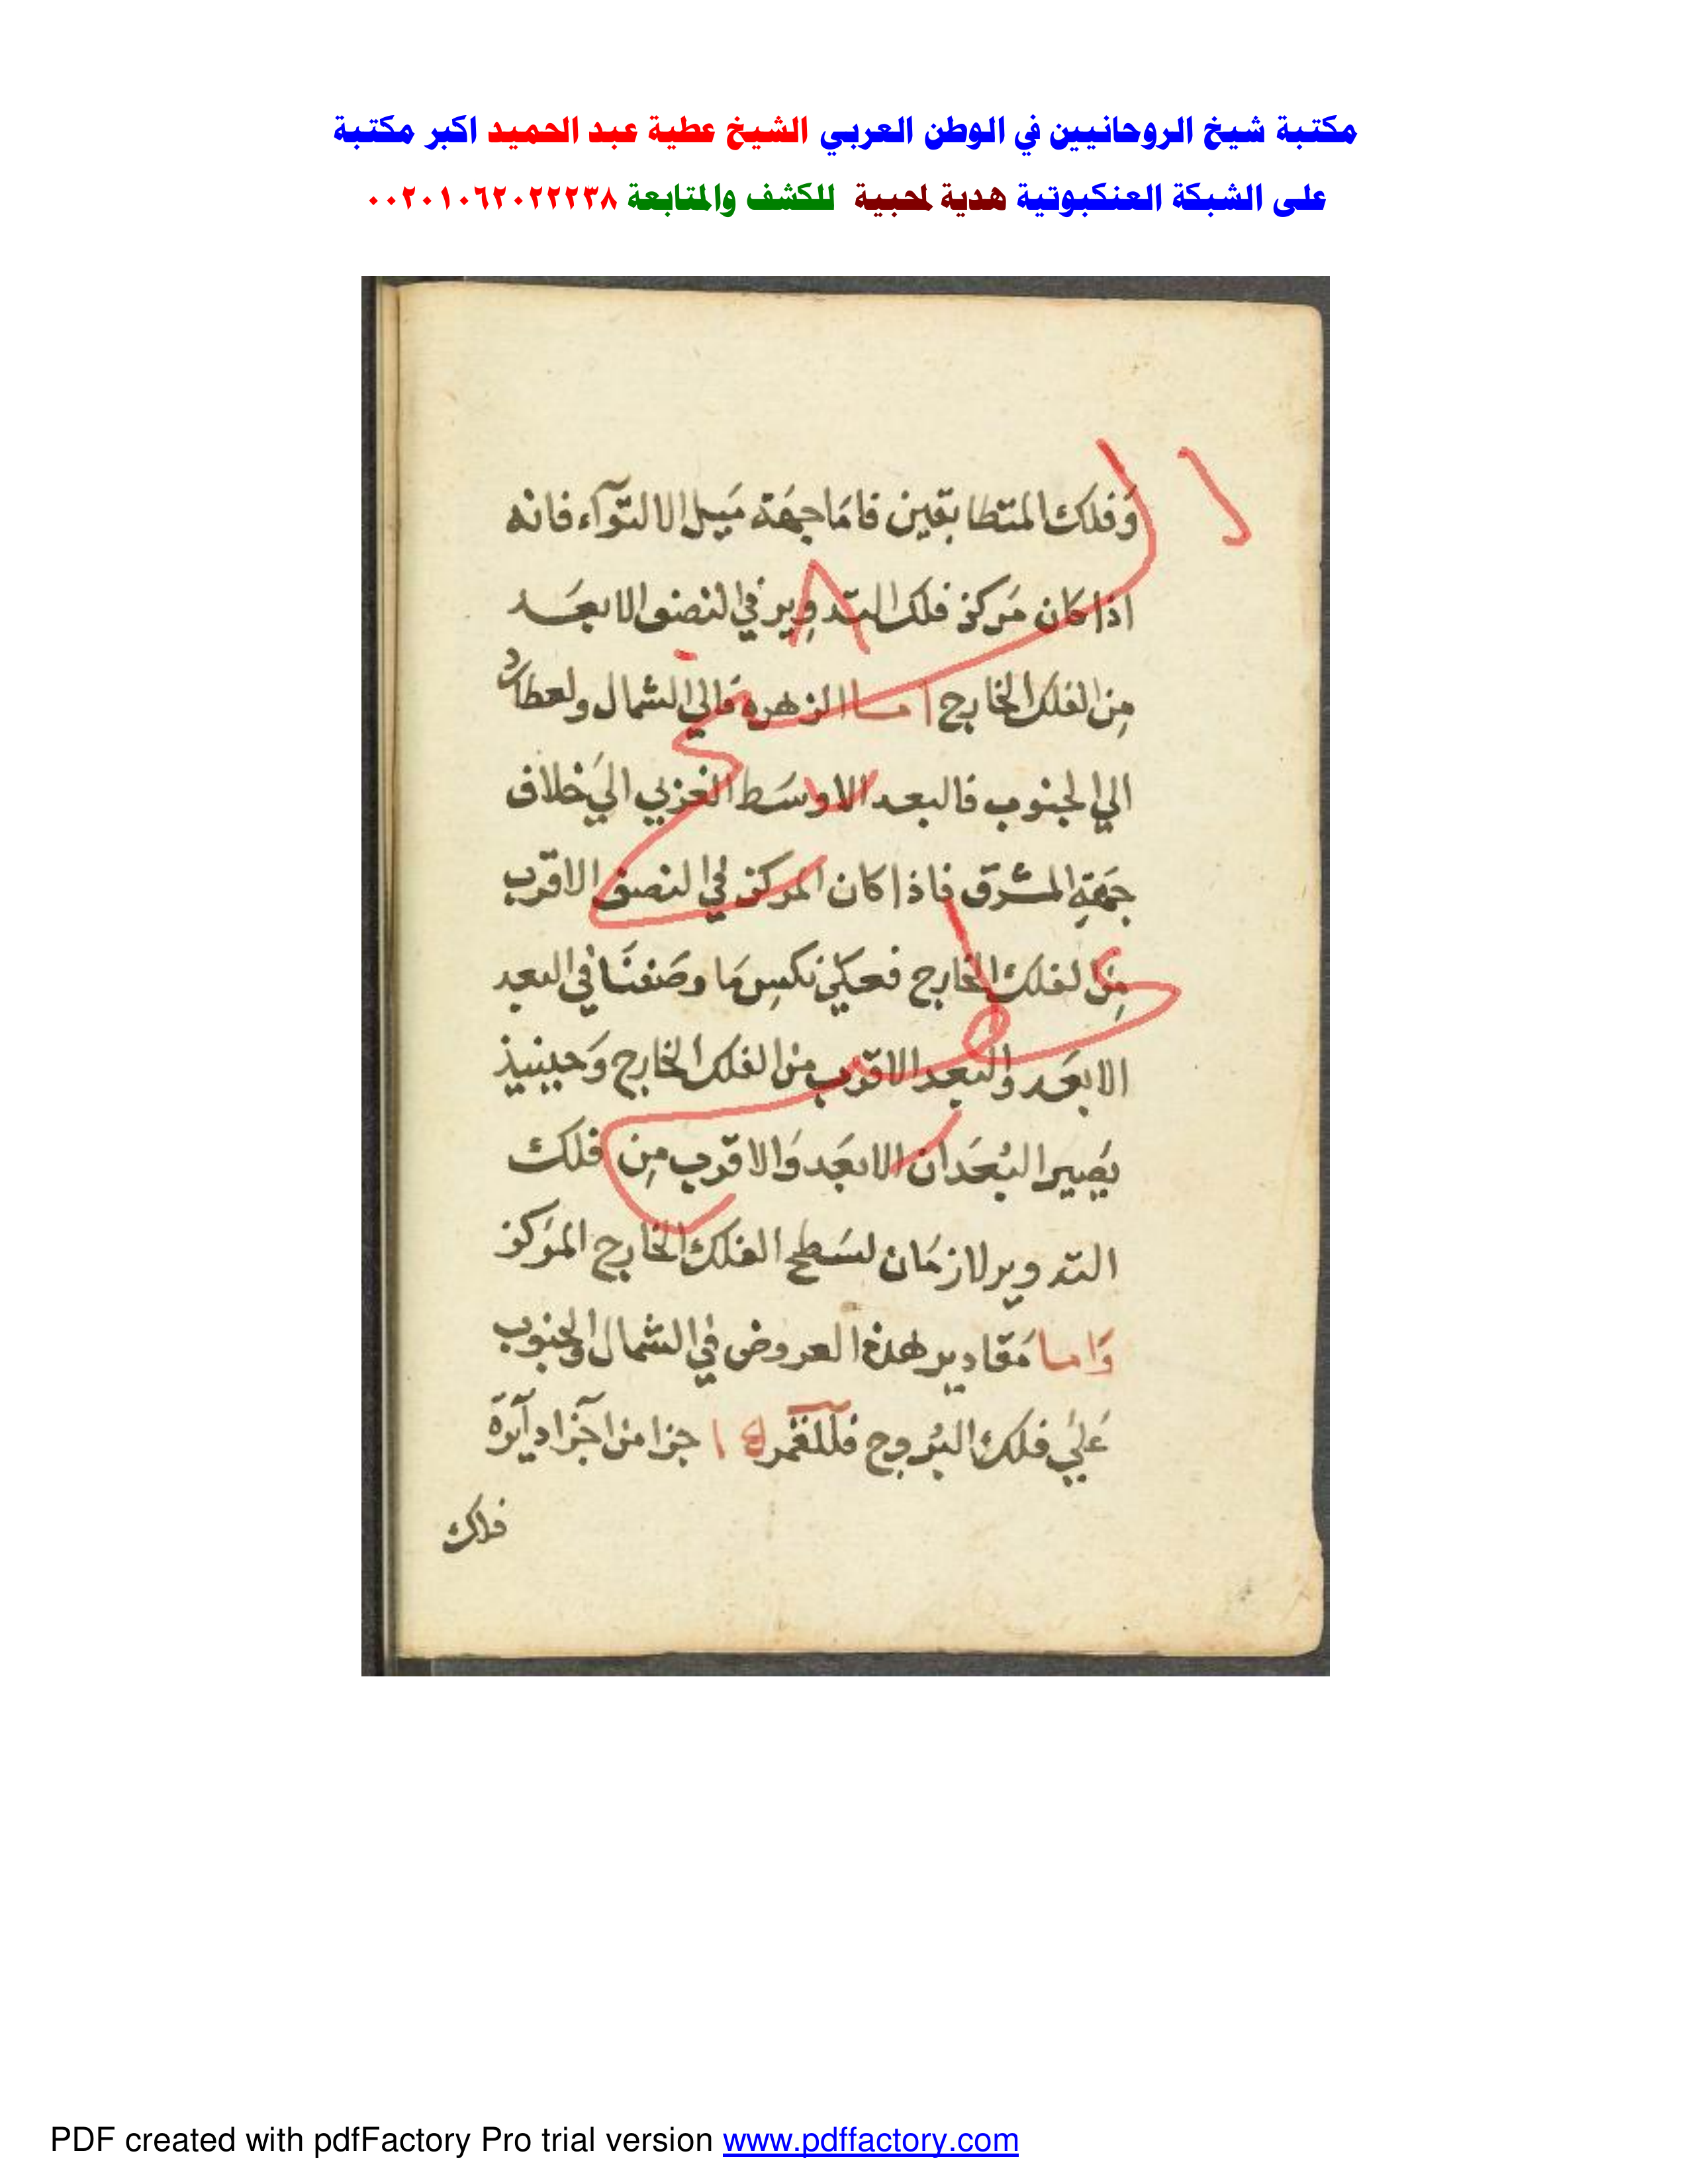 مكتبة شيخ الروحانيين في الوطن العربي الشيخ عطية عبد الحميد اكبر مكتبة
على الشبكة العنكبوتية هدية لمحبية للكشف والمتابعة ٠٠٢٠١٠٦٢٠٢٢٢٣٨
وَفلك المتطابقين فامَا جهَة مَيل الالتوآء فانه
اذا كان مَركز فلك التدوير في النصف الابعَد
مِن الفلك الخارج اما الزهرة فالي الشمال ولعطارد
الي الجنوب فالبعد الاوسَط الغربي الي خلاف
جهَةِ المشرق فاذا كان المركز في النصف الاقرب
مِن الفلك الخارج فعَلي نكسِ مَا وصَفنَا في البعد
الابعَد والبعد الاقرب من الفلك الخارج وَحينيذٍ
يَصير البُعدَان الابعَد وَالاقرب مِن فلك
التدوير لازمَان لسَطح الفلك الخارج المرَكز
وَاما مَقادير هذه العروض في الشمال والجنوب
عَلي فلك البُروج فللقمر جزا من اجزا دآيرة
فلك
PDF created with pdfFactory Pro trial version www.pdffactory.com